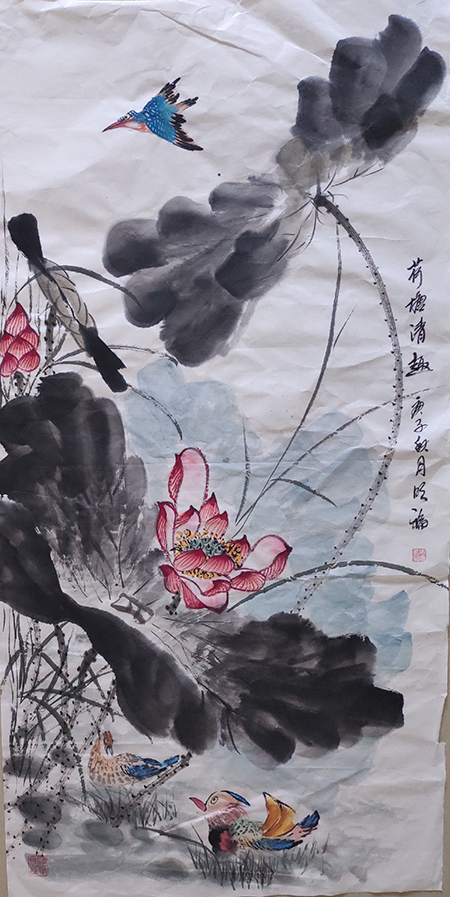 荷塘清趣 庚子秋月 福